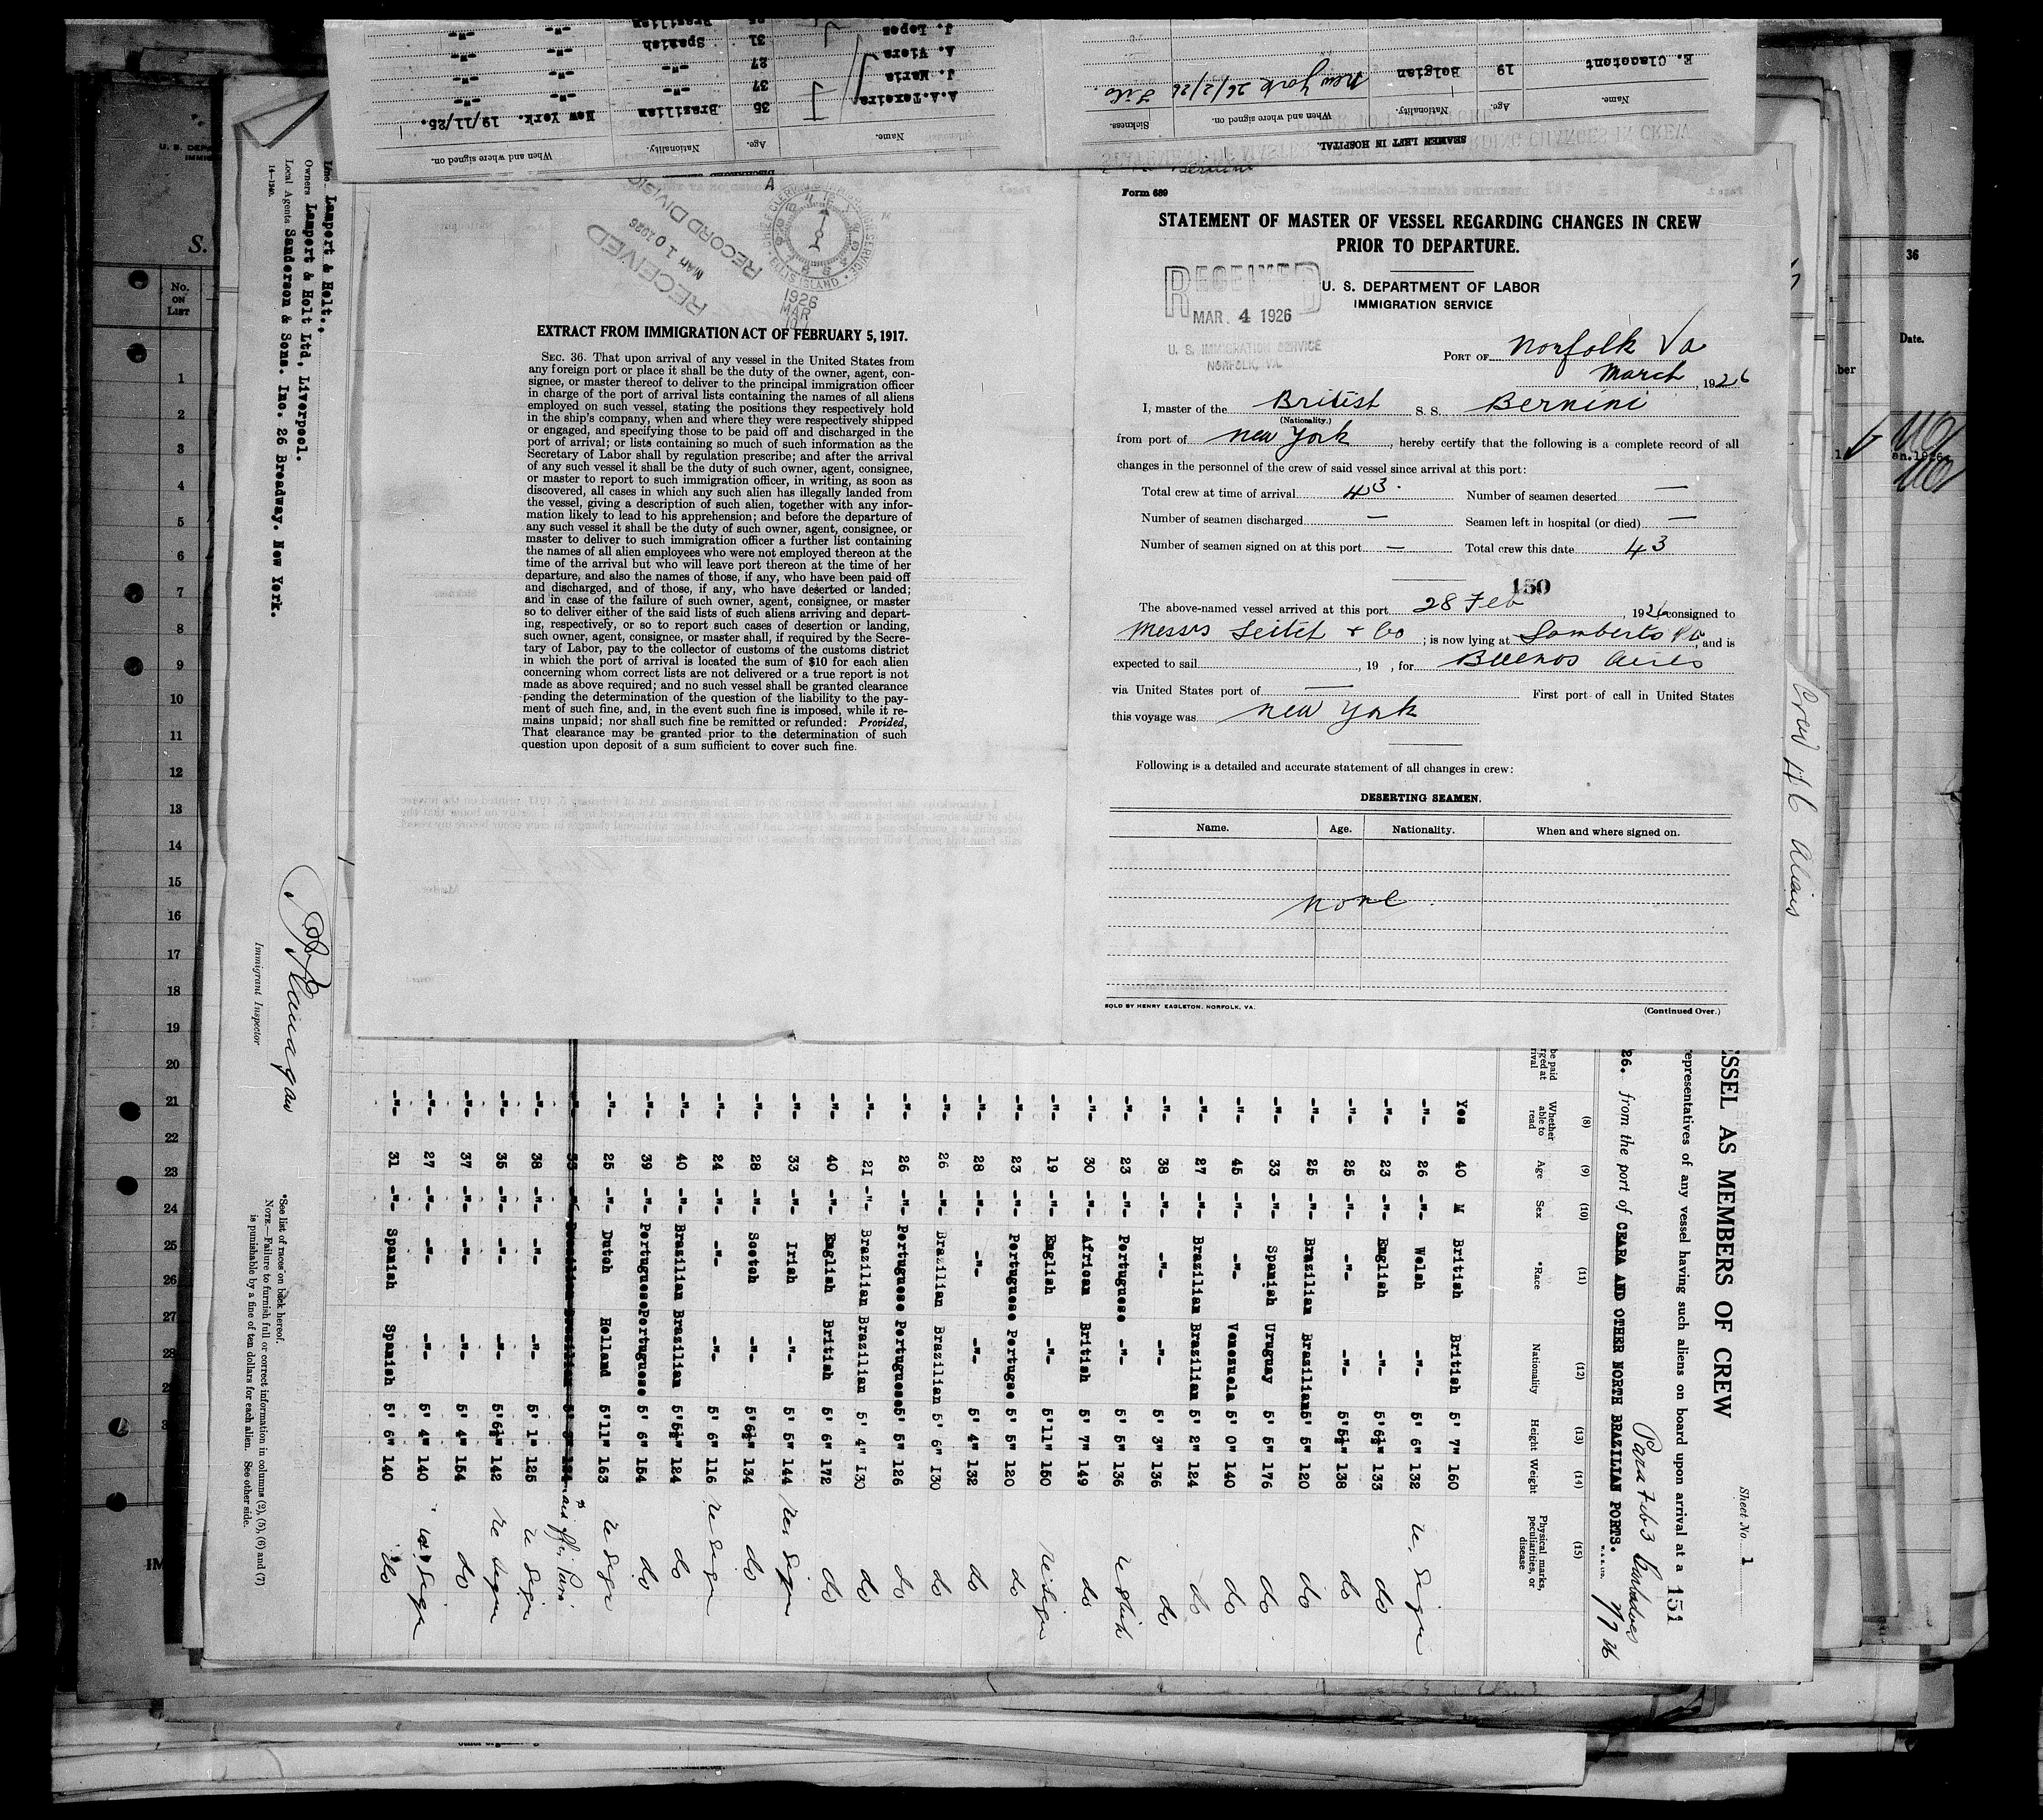 SEAMEN LEFT IN HOSPITAL.
Name. Age. Nationality. When and where signed on. Sickness.
E. Clactent 19 Belgian New York 26/2/26
Name. Age. Nationality. When and where signed on.
A.A.Texeira 35 Brazilian New York. 19/11/25.
J. Maria 37 -"- -"-
A. Viera 27 -"- -"-
J. Lopez 31 Spanish -"-
RECEIVED
MAR 10 1926
RECORD DIVISION
ELLIS ISLAND
1926
MAR
EXTRACT FROM IMMIGRATION ACT OF FEBRUARY 5, 1917.
SEC. 36. That upon arrival of any vessel in the United States from
any foreign port or place it shall be the duty of the owner, agent, con-
signee, or master thereof to deliver to the principal immigration officer
in charge of the port of arrival lists containing the names of all aliens
employed on such vessel, stating the positions they respectively hold
in the ship's company, when and where they were respectively shipped
or engaged, and specifying those to be paid off and discharged in the
port of arrival; or lists containing so much of such information as the
Secretary of Labor shall by regulation prescribe; and after the arrival
of any such vessel it shall be the duty of such owner, agent, consignee,
or master to report to such immigration officer, in writing, as soon as
discovered, all cases in which any such alien has illegally landed from
the vessel, giving a description of such alien, together with any infor-
mation likely to lead to his apprehension; and before the departure of
any such vessel it shall be the duty of such owner, agent, consignee, or
master to deliver to such immigration officer a further list containing
the names of all alien employees who were not employed thereon at the
time of the arrival but who will leave port thereon at the time of her
departure, and also the names of those, if any, who have been paid off
and discharged, and of those, if any, who have deserted or landed;
and in case of the failure of such owner, agent, consignee, or master
so to deliver either of the said lists of such aliens arriving and depart-
ing, respectively, or so to report such cases of desertion or landing,
such owner, agent, consignee, or master shall, if required by the Secre-
tary of Labor, pay to the collector of customs of the customs district
in which the port of arrival is located the sum of $10 for each alien
concerning whom correct lists are not delivered or a true report is not
made as above required; and no such vessel shall be granted clearance
pending the determination of the question of the liability to the pay-
ment of such fine, and, in the event such fine is imposed, while it re-
mains unpaid; nor shall such fine be remitted or refunded: Provided,
That clearance may be granted prior to the determination of such
question upon deposit of a sum sufficient to cover such fine.
Form 689
STATEMENT OF MASTER OF VESSEL REGARDING CHANGES IN CREW
PRIOR TO DEPARTURE.
U. S. DEPARTMENT OF LABOR
IMMIGRATION SERVICE
RECEIVED
MAR. 4 1926
U. S. IMMIGRATION SERVICE
NORFOLK, VA.
PORT OF Norfolk Va
March, 1926
I, master of the British S. S. Bernini
(Nationality.)
from port of New York, hereby certify that the following is a complete record of all
changes in the personnel of the crew of said vessel since arrival at this port:
Total crew at time of arrival 43. Number of seamen deserted —
Number of seamen discharged — Seamen left in hospital (or died) —
Number of seamen signed on at this port — Total crew this date 43
150
The above-named vessel arrived at this port 28 Feb, 1926 consigned to
Messrs & Co; is now lying at Lamberts Pt, and is
expected to sail, 19 , for Buenos Aires
via United States port of — First port of call in United States
this voyage was New York
Following is a detailed and accurate statement of all changes in crew:
DESERTING SEAMEN.
Name. Age. Nationality. When and where signed on.
None.
SOLD BY HENRY EAGLETON, NORFOLK, VA.
(Continued Over.)
Crew 46 Aliens
36
Date.
No. ON LIST
1
2
3
4
5
6
7
8
9
10
11
12
13
14
15
16
17
18
19
20
21
22
23
24
25
26
27
28
Sheet No. 1
SSEL AS MEMBERS OF CREW
151
epresentatives of any vessel having such aliens on board upon arrival at a
Para Feb 3 Barbados
26. from the port of CEARA AND OTHER NORTH BRAZILIAN PORTS.
(8) (9) (10) (11) (12) (13) (14) (15)
Whether able to read Age Sex *Race Nationality Height Weight Physical marks, peculiarities, or disease
Yes 40 M British British 5' 7" 160
-"- 26 -"- Welsh -"- 5' 6" 132 re sign
-"- 23 -"- English -"- 5'6½" 133 do
-"- 25 -"- -"- -"- 5'5½" 138 do
-"- 25 -"- Brazilian Brazilian 5' 5" 120 do
-"- 33 -"- Spanish Uruguay 5' 5" 176 do
-"- 45 -"- -"- Venezuela 5' 0" 140 do
-"- 27 -"- Brazilian Brazilian 5' 2" 124 do
-"- 38 -"- -"- -"- 5' 3" 136 do
-"- 23 -"- Portuguese -"- 5' 5" 136
-"- 30 -"- African British 5' 7" 149 do
-"- 19 -"- English -"- 5'11" 150 re sign
-"- 23 -"- Portuguese Portugse 5' 5" 120 do
-"- 28 -"- -"- -"- 5' 4" 132 do
-"- 26 -"- Brazilian Brazilian 5' 6" 130 do
-"- 26 -"- Portuguese Portuguese 5' 5" 126 do
-"- 21 -"- Brazilian Brazilian 5' 4" 130 do
-"- 40 -"- English British 5' 6" 172 do
-"- 33 -"- Irish -"- 5' 5" 144 re sign
-"- 28 -"- Scotch -"- 5'6½" 134 do
-"- 24 -"- -"- -"- 5' 6" 116 re sign
-"- 40 -"- Brazilian Brazilian 5'5½" 124 do
-"- 39 -"- Portuguese Portuguese 5' 6" 154 do
-"- 25 -"- Dutch Holland 5'11" 163 re sign
-"- 33 -"- Brazilian Brazilian 5' 3" 124
-"- 38 -"- -"- -"- 5' 1" 125 re sign
-"- 35 -"- -"- -"- 5'6½" 142 re sign
-"- 37 -"- -"- -"- 5' 4" 154 do
-"- 27 -"- -"- -"- 5' 4" 140
-"- 31 -"- Spanish Spanish 5' 6" 140 do
Line Lamport & Holt.,
Owners Lamport & Holt Ltd. Liverpool.
Local Agents Sanderson & Sons. Inc. 26 Broadway. New York.
14—1240.
Flannagan
Immigrant Inspector
*See list of races on back hereof.
NOTE.—Failure to furnish full or correct information in columns (2), (5), (6) and (7)
is punishable by a fine of ten dollars for each alien. See other side.